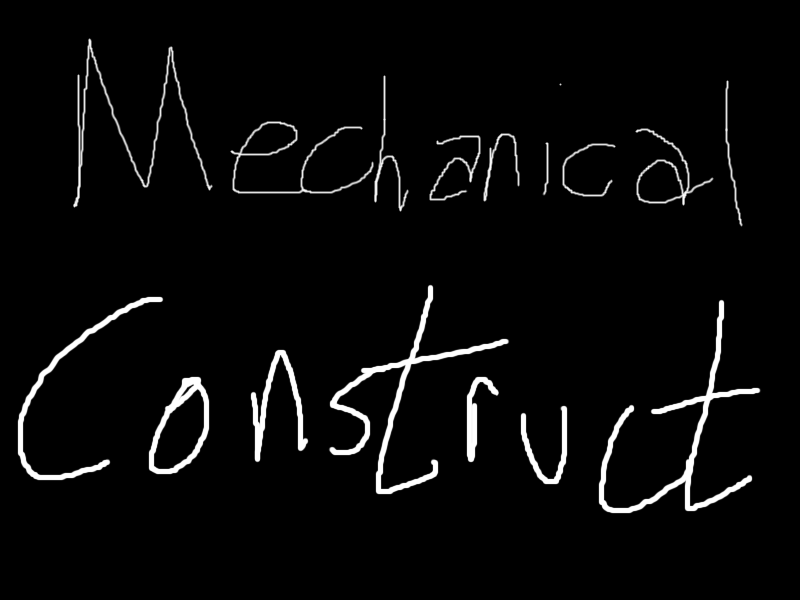 Mechanical
Construct